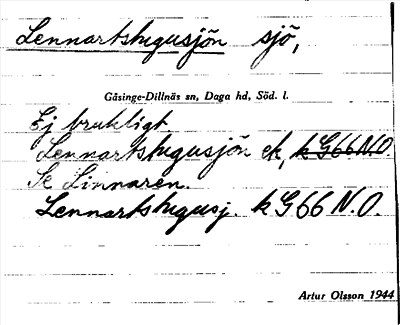 Lennartstugusjön sjö,
Gåsinge-Dillnäs sn, Daga hd, Söd. l.
Ej brukligt
Lennartstugusjön ek, k G 66 N.O.
Se Linnaren.
Lennartstugusj. k G 66 N.O.
Artur Olsson 1944